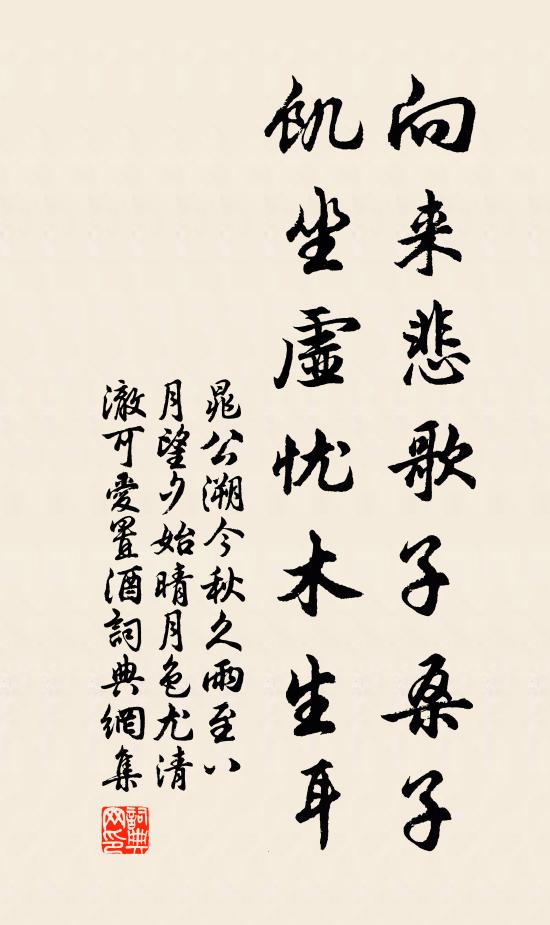 向来悲歌子桑子
飢坐虚忧木生耳
晁公溯今秋久雨至八
月望夕始晴月色尤清
澈可愛置酒詞典網集
詞典网印